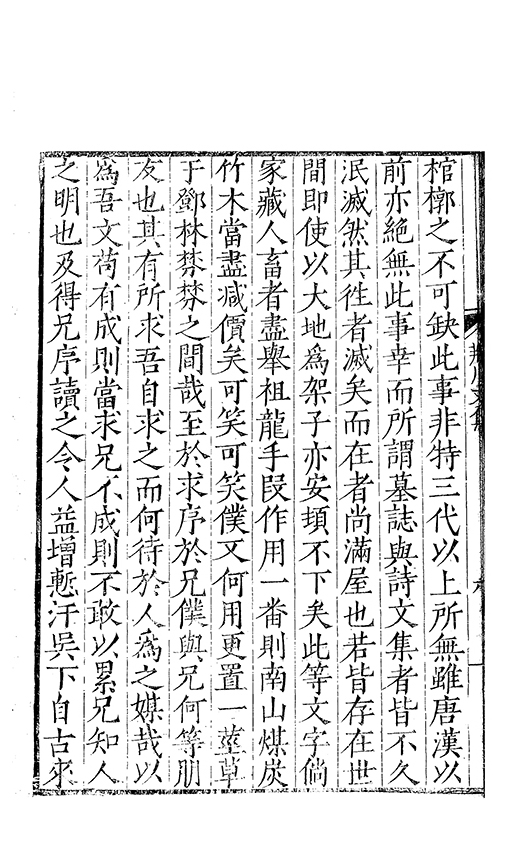 棺槨之不可缺此事非特三代以上所無雖唐漢以
前亦絕無此事幸而所謂墓誌與詩文集者皆不久
泯滅然其徃者滅矣而在者尚滿屋也若皆存在世
間即使以大地爲架子亦安頓不下矣此等文字倘
家藏人畜者盡舉祖龍手段作用一番則南山煤炭
竹木當盡减價矣可笑可笑僕又何用更置一莖草
于鄧林棼棼之間哉至於求序於兄僕與兄何等朋
友也其有所求吾自求之而何待於人爲之媒哉以
爲吾文苟有成則當求兄不成則不敢以累兄知人
之明也及得兄序讀之令人益增慙汗吳下自古來